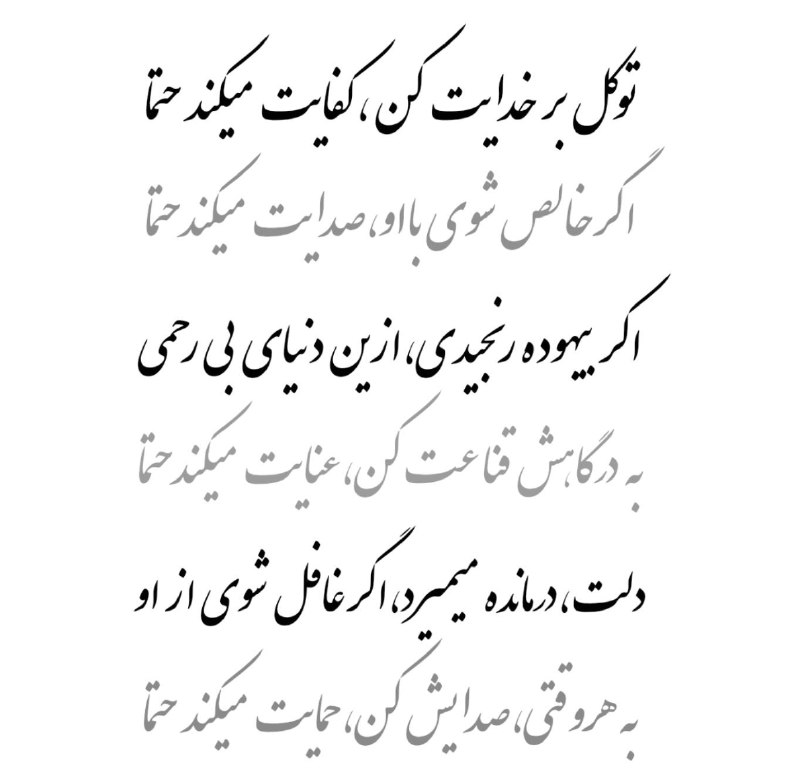 توکل بر خدایت کن، کفایت میکند حتما
اگر خالص شوی با او، صدایت میکند حتما
اگر بیهوده رنجیدی، ازین دنیای بی رحمی
به درگاهش قناعت کن، عنایت میکند حتما
دلت، درمانده میمیرد، اگر غافل شوی از او
به هر وقتی، صدایش کن، حمایت میکند حتما